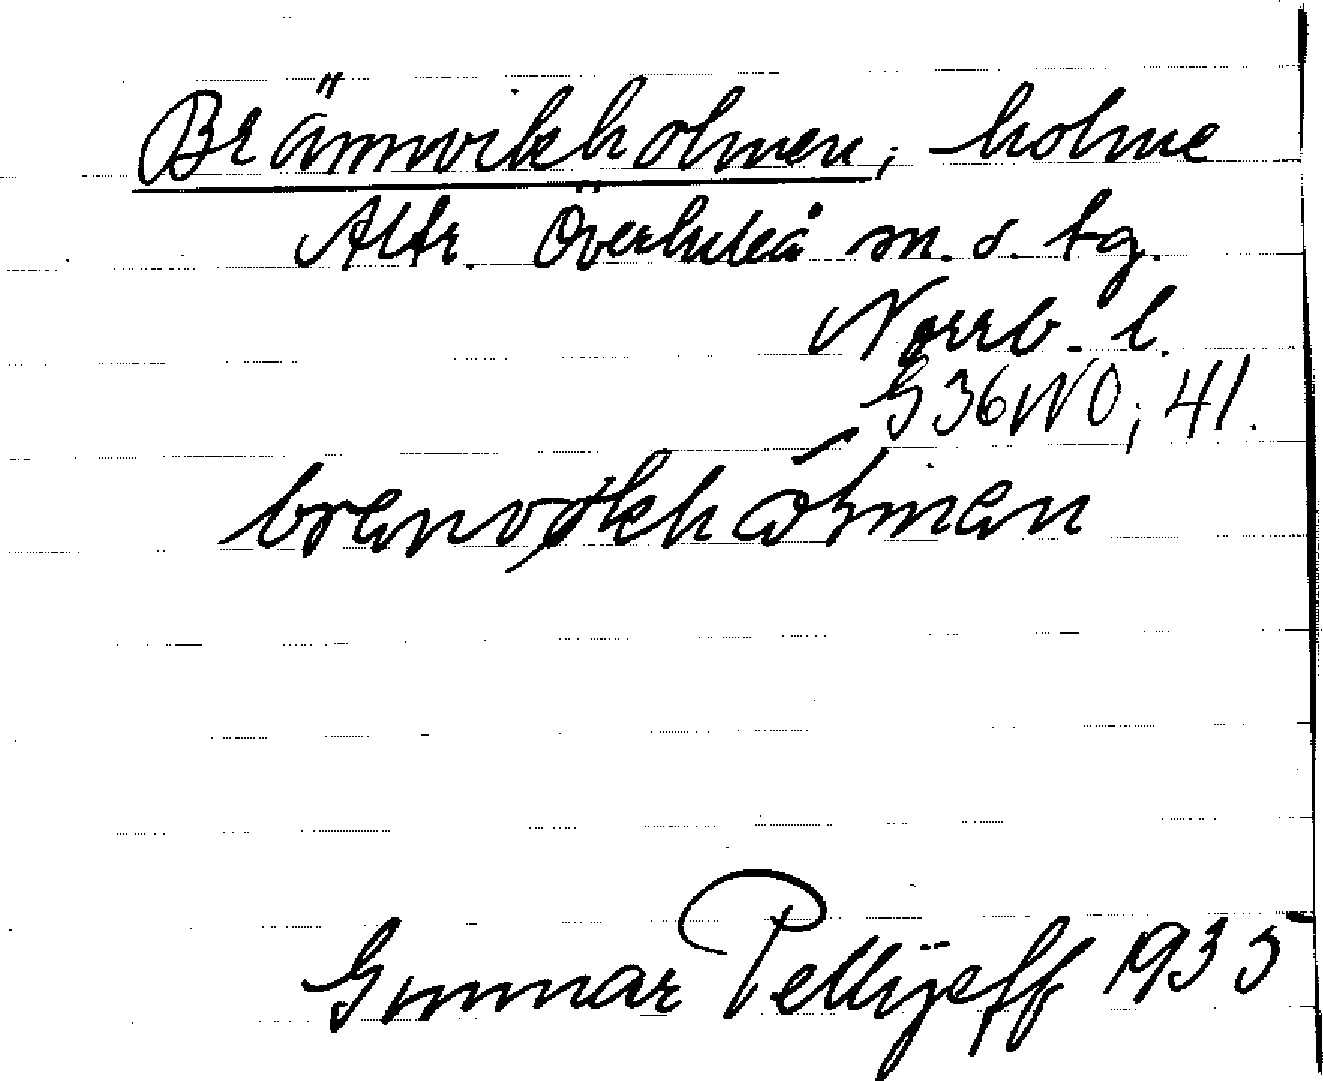 Brännvikholmen, holme
Altr. Överluleå sn. s. tg.
Norrb. l.
G36NO, 41.
Gunnar Pellijeff 1935